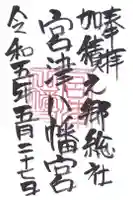 奉拝
加積郷総社
宮津八幡宮
令和五年五月二十七日